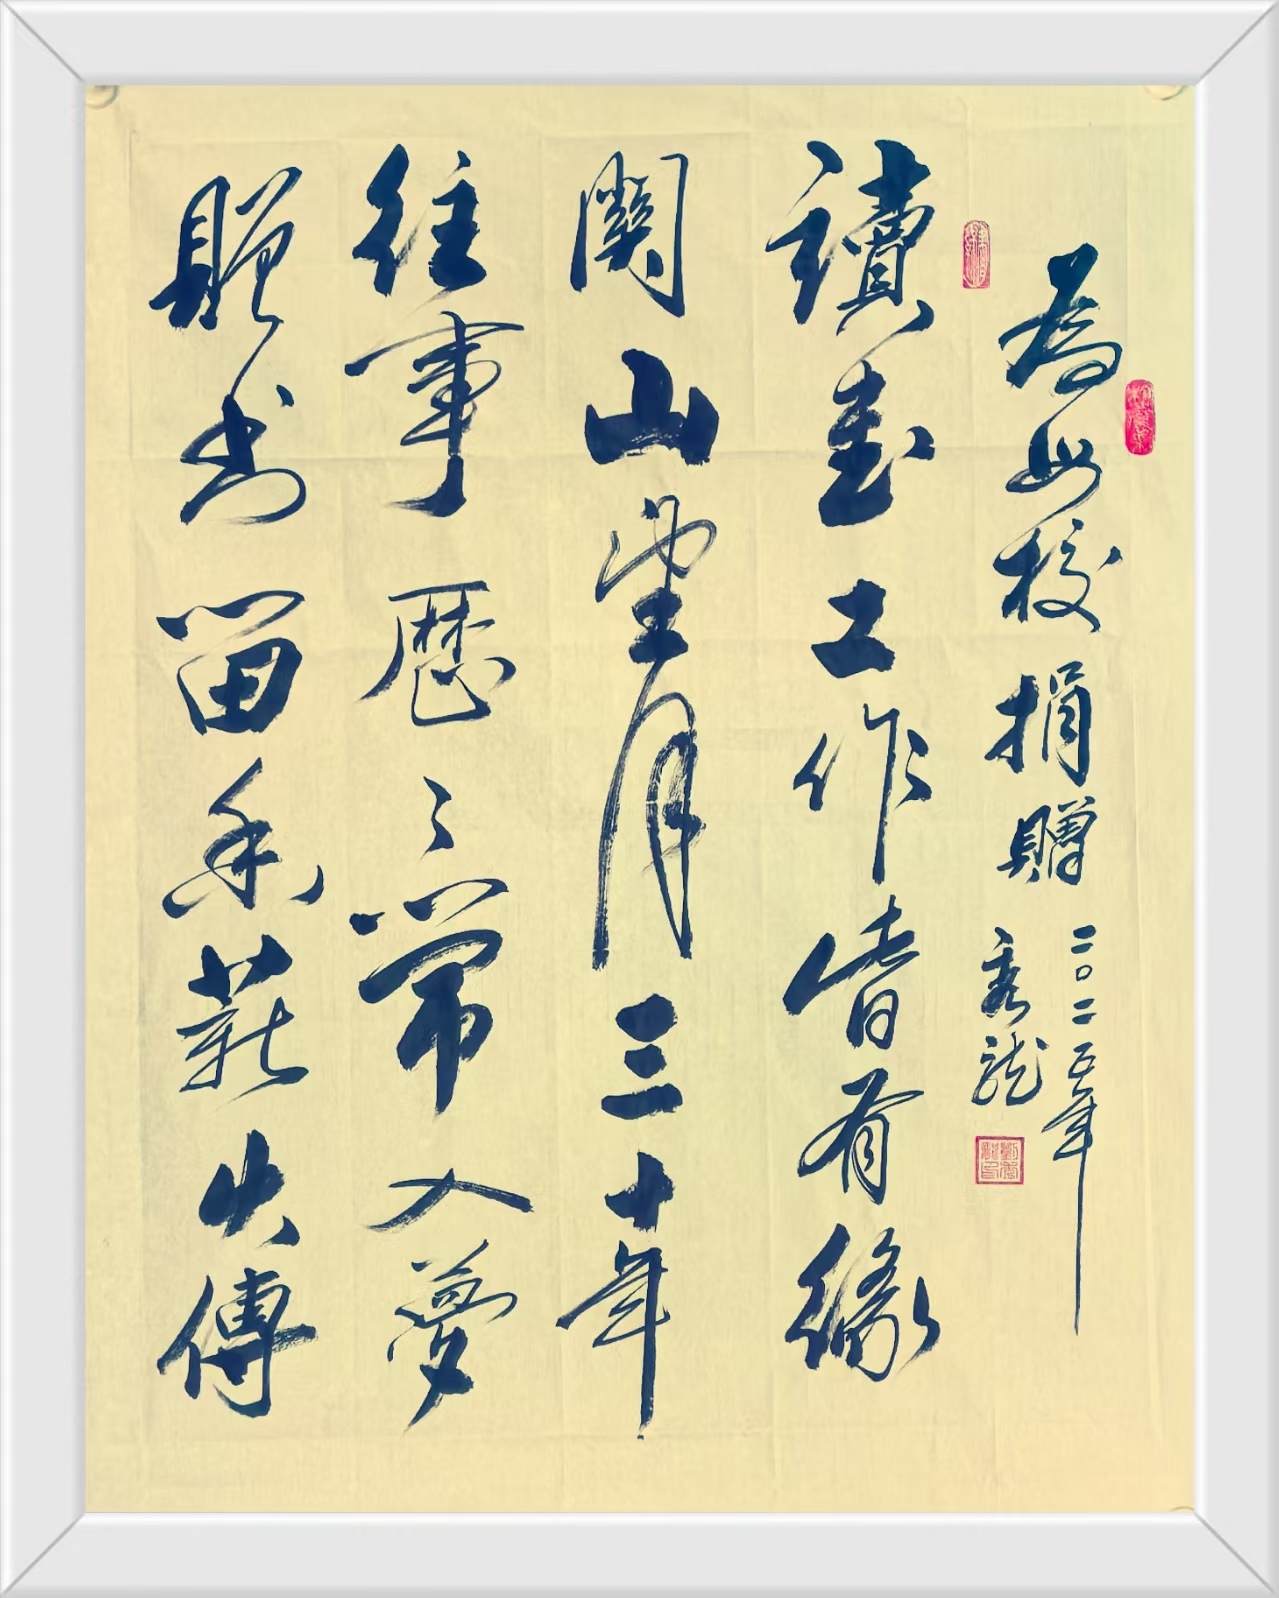 為母校捐贈
二〇二五年
秀龍
讀書工作皆有緣
關山望月三十年
往事歷々常入夢
贈書留香薪火傳